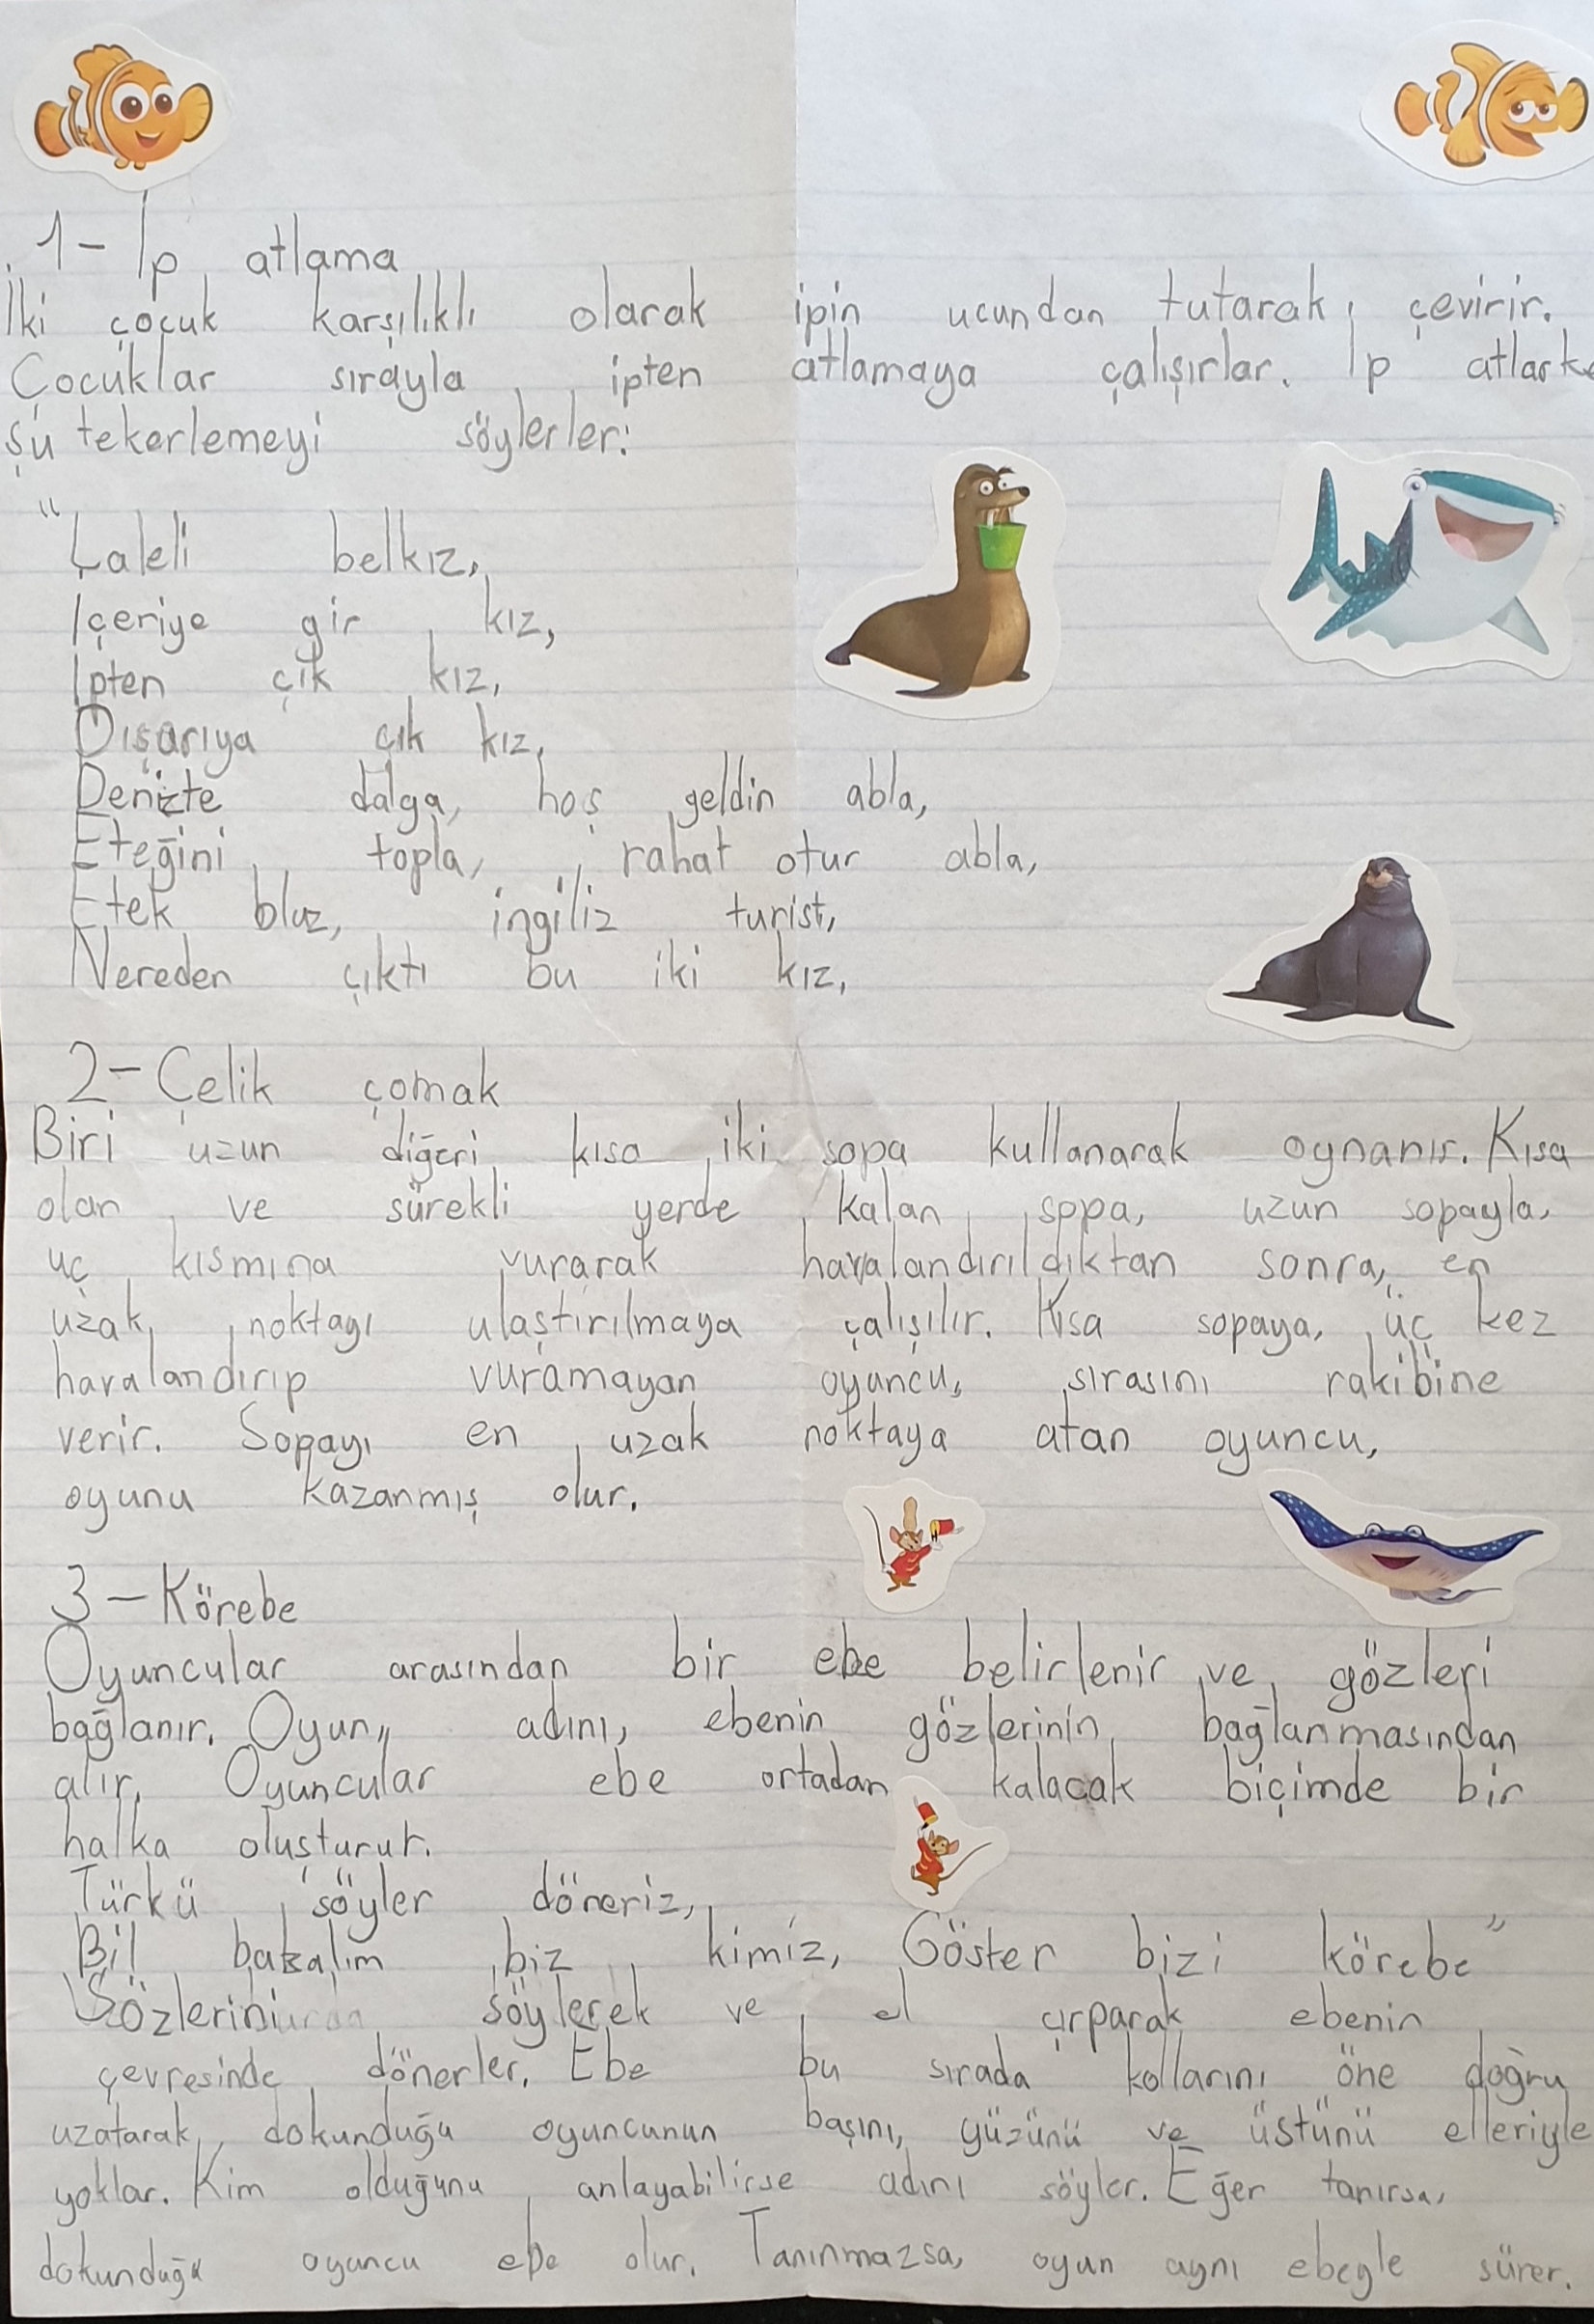 1- İp atlama
İki çocuk karşılıklı olarak ipin ucundan tutarak çevirir.
Çocuklar sırayla ipten atlamaya çalışırlar. İp atlarke
şu tekerlemeyi söylerler:
"Laleli belkız,
İçeriye gir kız,
İpten çık kız,
Dışarıya çık kız,
Denizte dalga, hoş geldin abla,
Eteğini topla, rahat otur abla,
Etek bluz, ingiliz turist,
Nereden çıktı bu iki kız,
2- Çelik çomak
Biri uzun diğeri kısa iki sopa kullanarak oynanır. Kısa
olan ve sürekli yerde kalan sopa, uzun sopayla,
uç kısmına vurarak havalandırıldıktan sonra, en
uzak noktayı ulaştırılmaya çalışılır. Kısa sopaya, üç kez
havalandırıp vuramayan oyuncu, sırasını rakibine
verir. Sopayı en uzak noktaya atan oyuncu,
oyunu kazanmış olur.
3- Körebe
Oyuncular arasından bir ebe belirlenir ve gözleri
bağlanır. Oyun, adını, ebenin gözlerinin bağlanmasından
alır. Oyuncular ebe ortadan kalacak biçimde bir
halka oluşturur.
Türkü söyler döneriz,
Bil bakalım biz kimiz, Göster bizi körebe"
Sözlerini söylerek ve el çırparak ebenin
çevresinde dönerler. Ebe bu sırada kollarını öne doğru
uzatarak, dokunduğu oyuncunun başını, yüzünü ve üstünü elleriyle
yoklar. Kim olduğunu anlayabilirse adını söyler. Eğer tanırsa,
dokunduğu oyuncu ebe olur. Tanınmazsa, oyun aynı ebeyle sürer.